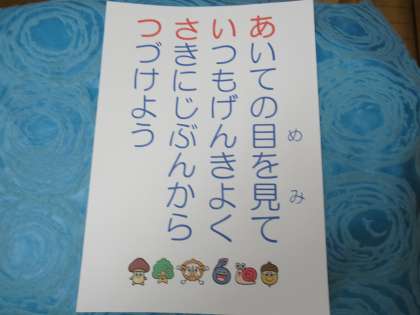 あいての目を見て
めみ
いつもげんきよく
さきにじぶんから
つづけよう